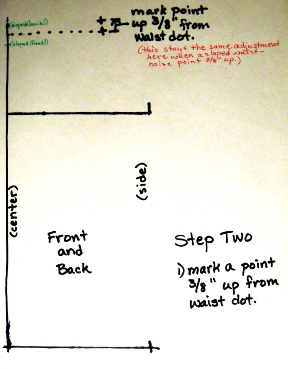 mark point
up 3/8" from
waist dot.
(sloped(back))
(sloped(front))
(this stays the same adjustment
here when a sloped waist-
raise point 3/8" up.)
(center)
(side)
Front
and
Back
Step Two
1) mark a point
3/8" up from
waist dot.